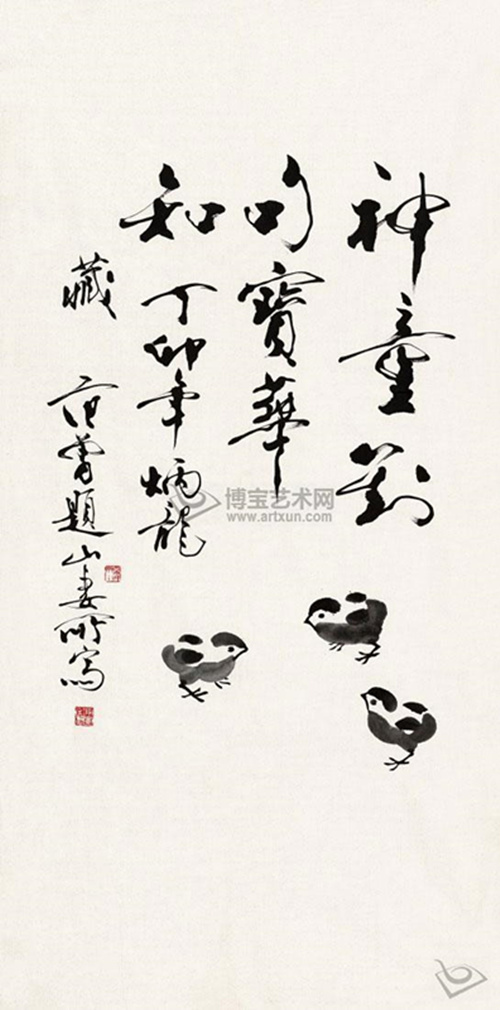 神童對
句寶華
和丁卯年炳龍
藏
范曾題山妻所寫
博宝艺术网
www.artxun.com